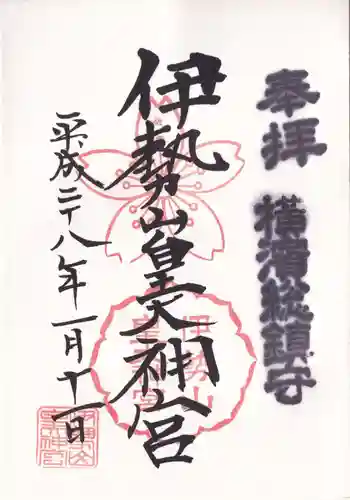 奉拝
横濱総鎮守
伊勢山皇大神宮
伊勢山皇大神宮
平成二十八年一月十一日